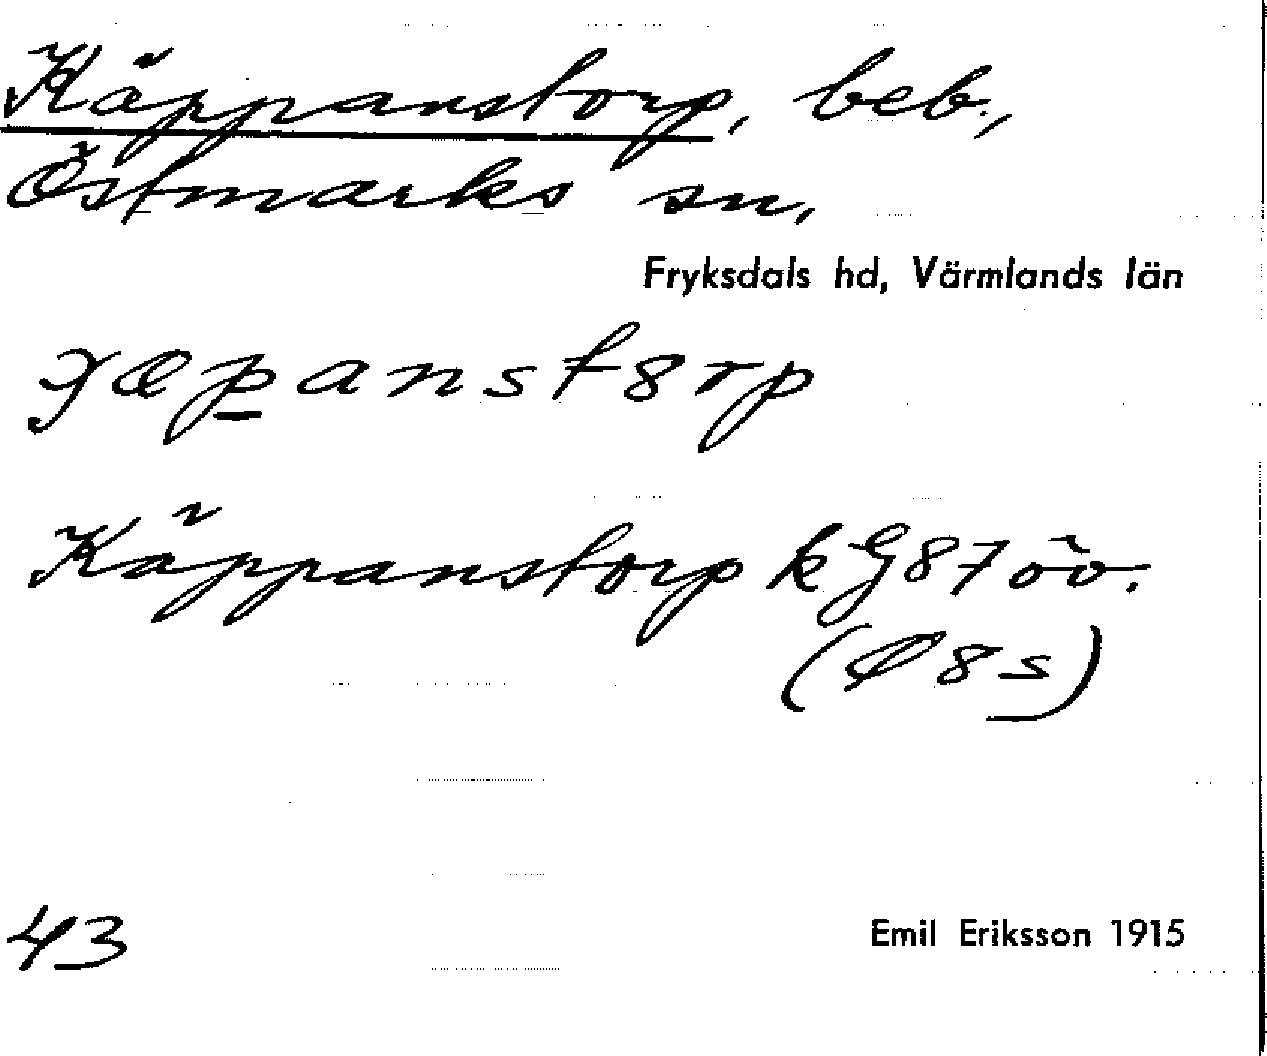 Käppanstorp, beb.,
Östmarks sn,
Fryksdals hd, Värmlands län
Käppanstorp kG87öv.
43
Emil Eriksson 1915